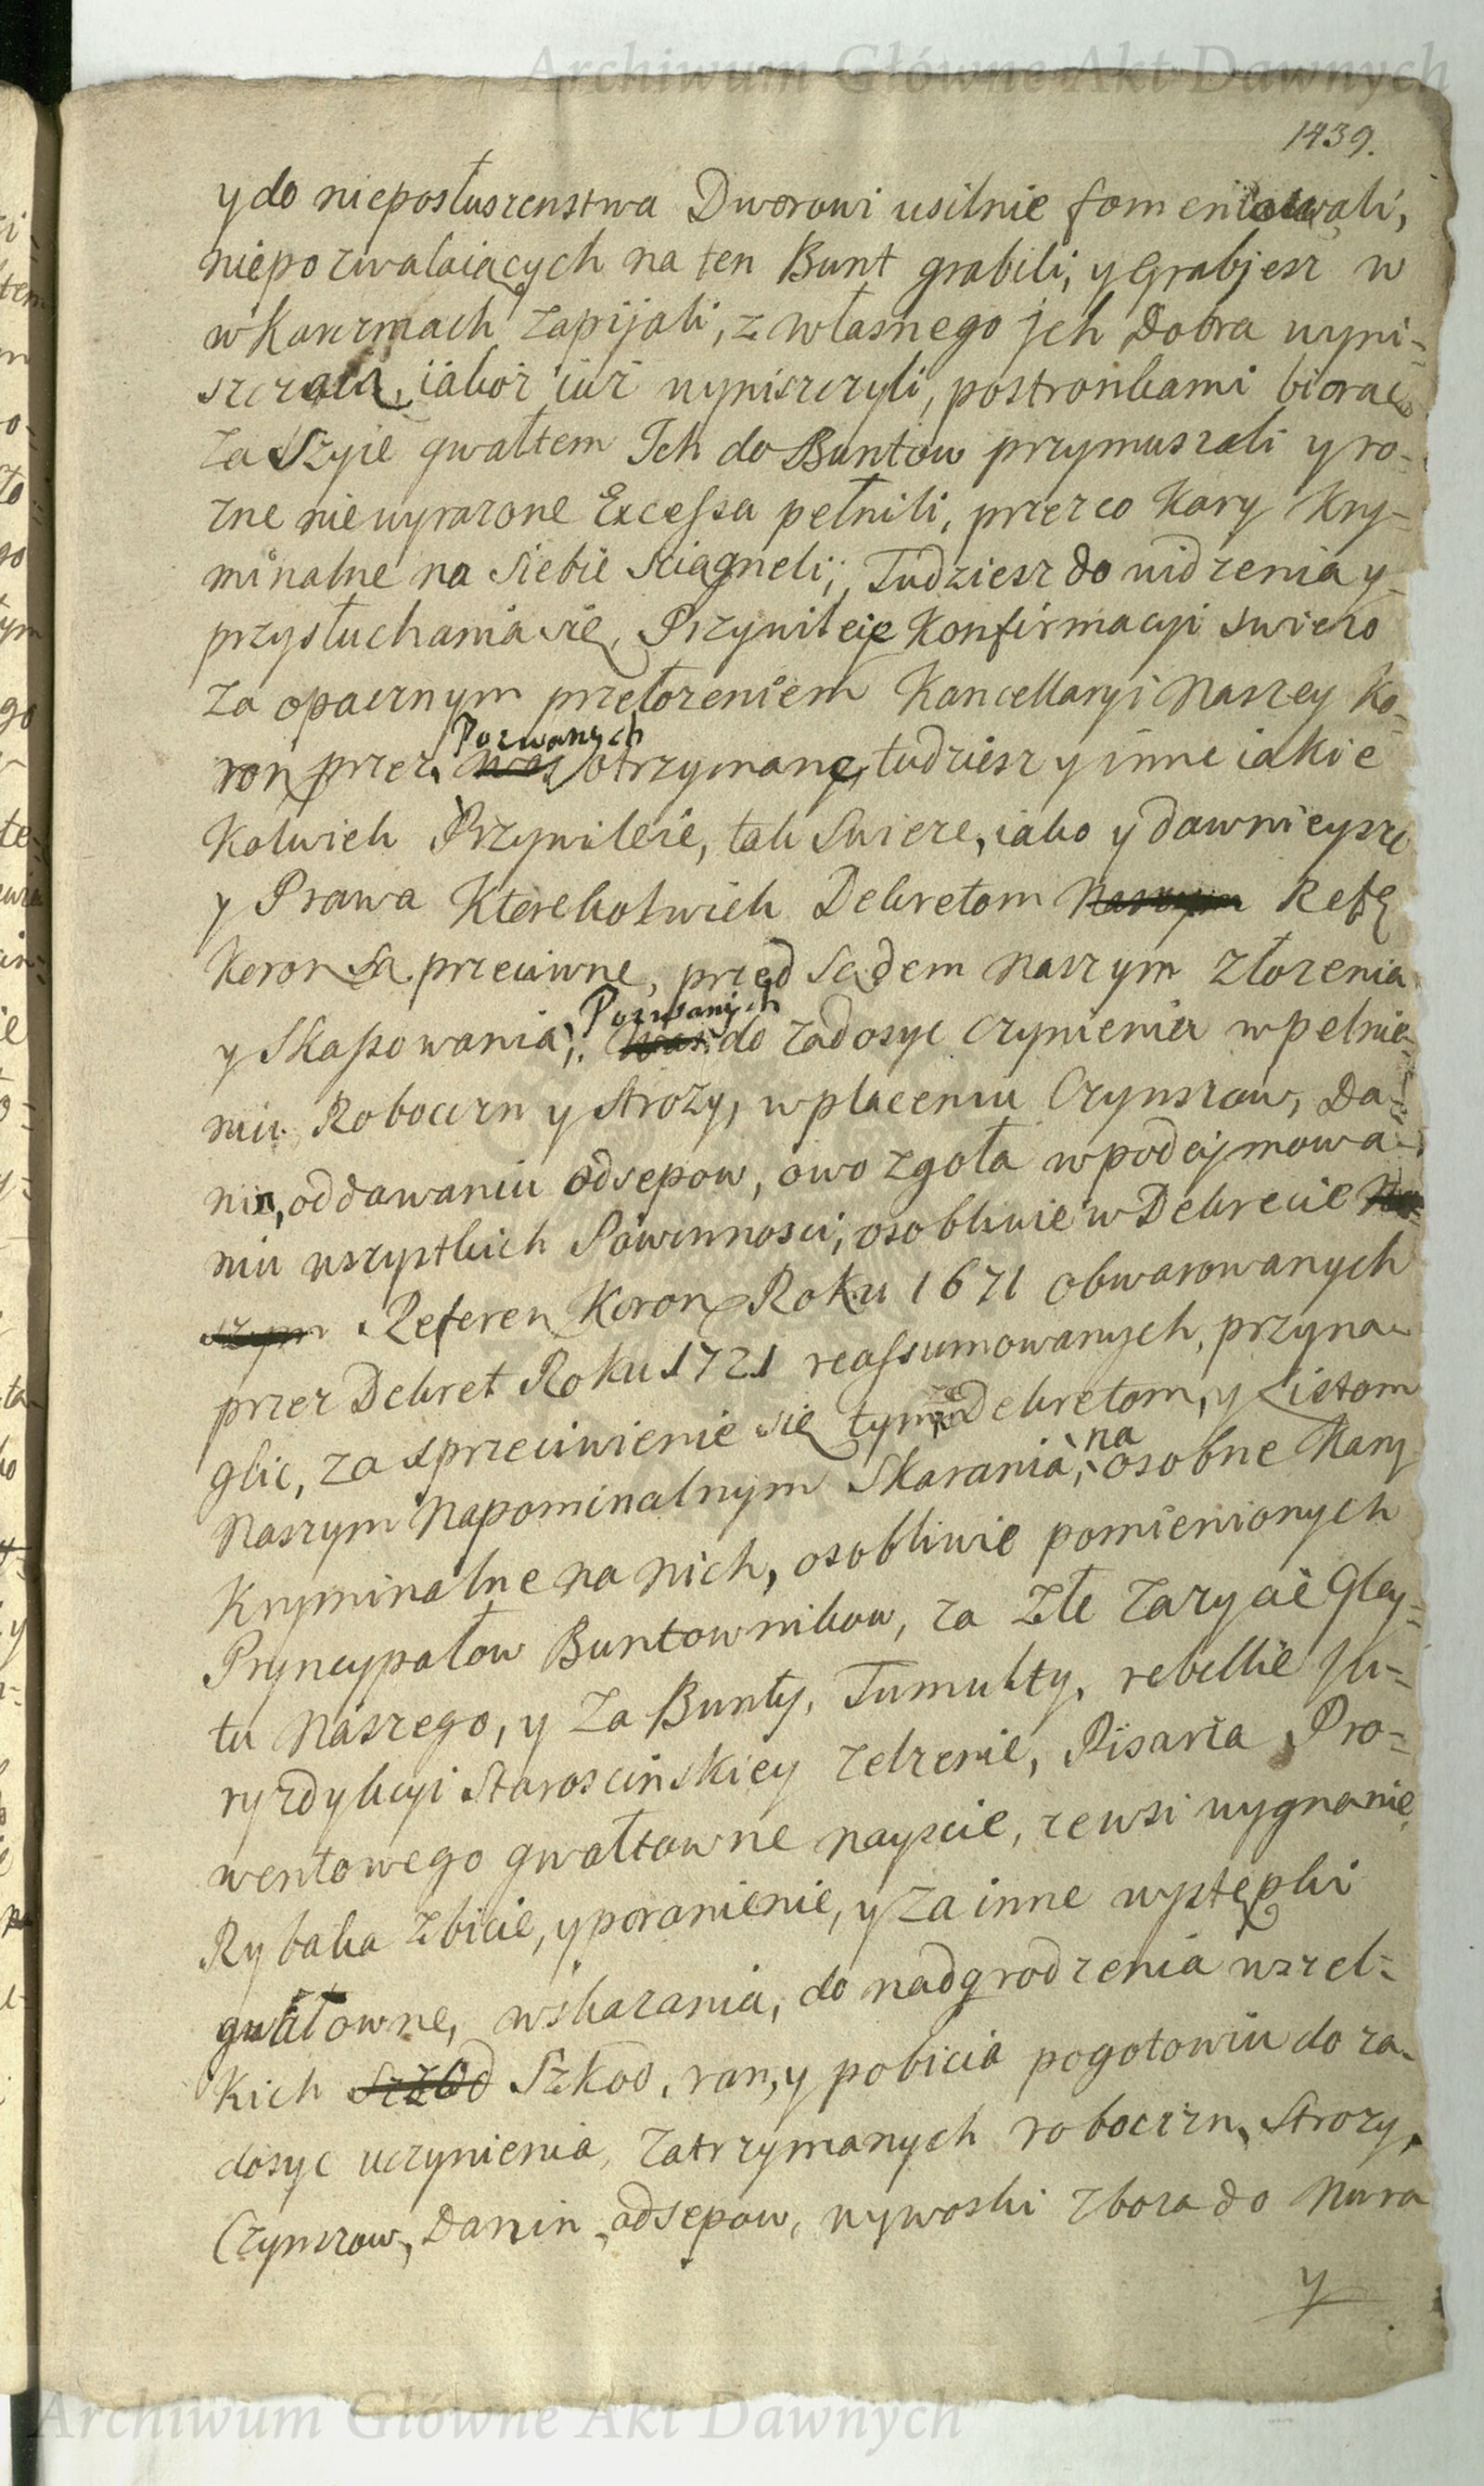 Archiwum Główne Akt Dawnych
1439.
y do nieposłuszenstwa Dworowi usilnie fomentowali,
niepozwalaiących na ten Bunt grabili, y Grabjesz w
w Karczmach zapijali, z własnego jch Dobra wyni-
szczali, iakoż iuż wyniszczyli, postronkami biorąc
za Szyie gwałtem Ich do Buntow przymuszali y ro-
zne niewyrazone Excessa pełnili, przez co Kary Kry-
minalne na siebie sciągneli; Tudziesz do widzenia y
przysłuchania się, Przywileię Konfirmacyi swiezo
za opacznym przełozeniem Kancellaryi Naszey Ko-
ron przez Pozwanych otrzymanę, tudziesz y inne iakie
Kolwiek Przywileie, tak Swieze, iako y dawnieysze
y Prawa Ktorekolwiek Dekretom Naszym Refę
Koron są przeciwne, przed Sądem Naszym złozenia
y Skassowania; Pozwanych do zadosyc czynienia w pełnie-
niu Roboczn y Strozy, w płaceniu Czynszow, Da-
nin, oddawaniu odsepow, owo zgoła w podejmowa-
niu wszystkich Powinnosci, osobliwie w Dekrecie Na-
szym Referen Koron Roku 1671 obwarowanych
przez Dekret Roku 1721 reassumowanych, przyna-
glic, za sprzeciwienie się tymze Dekretom, y Listom
Naszym Napominalnym Skarania, na osobne Kary
Kryminalne na nich, osobliwie pomienionych
Pryncypałow Buntownikow, za Złe Zazycie Gley-
tu Naszego, y za Bunty, Tumulty, rebellie Ju-
ryzdykcyi Staroscinskiey Zelzenie, Pisarza Pro-
wentowego gwałtowne nayscie, ze wsi wygnanie,
Rybaka zbicie, y poranienie, y za inne występki
gwałtowne, wskazania, do nadgrodzenia wszel-
kich Szkod, ran, y pobicia pogotowiu do za-
dosyc uczynienia, zatrzymanych roboczn, Strozy,
Czynszow, Danin, odsepow, wywoski zboza do Nura
y
Archiwum Główne Akt Dawnych